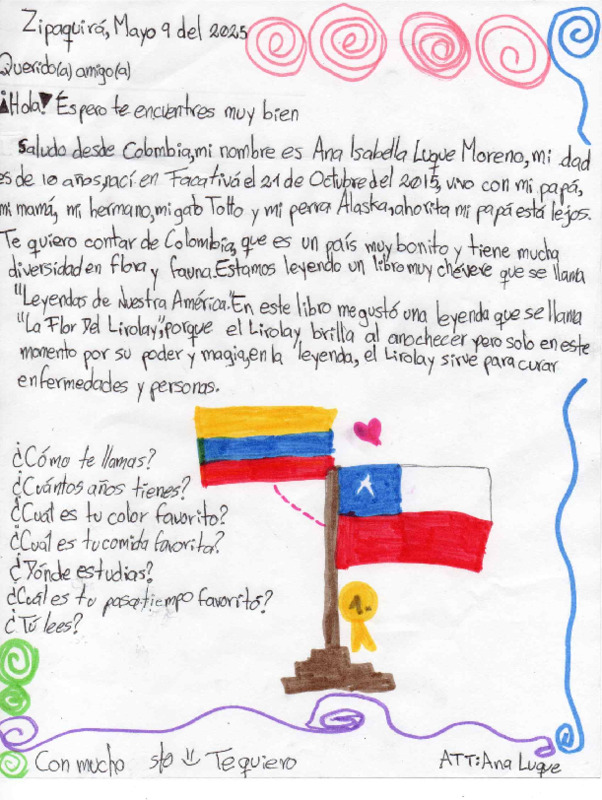 Zipaquirá, Mayo 9 del 2025
Querido(a) amigo(a)
¡Hola! Espero te encuentres muy bien
Saludo desde Colombia, mi nombre es Ana Isabella Luque Moreno, mi dad
es de 10 años, nací en Facativá el 21 de Octubre del 2015, vivo con mi papá,
mi mamá, mi hermano, mi gato Totto y mi perra Alaska, ahorita mi papá está lejos.
Te quiero contar de Colombia, que es un país muy bonito y tiene mucha
diversidad en flora y fauna. Estamos leyendo un libro muy chévere que se llama
"Leyendas de Nuestra América". En este libro me gustó una leyenda que se llama
"La Flor Del Lirolay", porque el Lirolay brilla al anochecer pero solo en este
momento por su poder y magia, en la leyenda, el Lirolay sirve para curar
enfermedades y personas.
¿Cómo te llamas?
¿Cuántos años tienes?
¿Cual es tu color favorito?
¿Cual es tu comida favorita?
¿Dónde estudias?
¿Cuál es tu pasatiempo favorito?
¿Tú lees?
1.
Con mucho Te quiero
ATT: Ana Luque